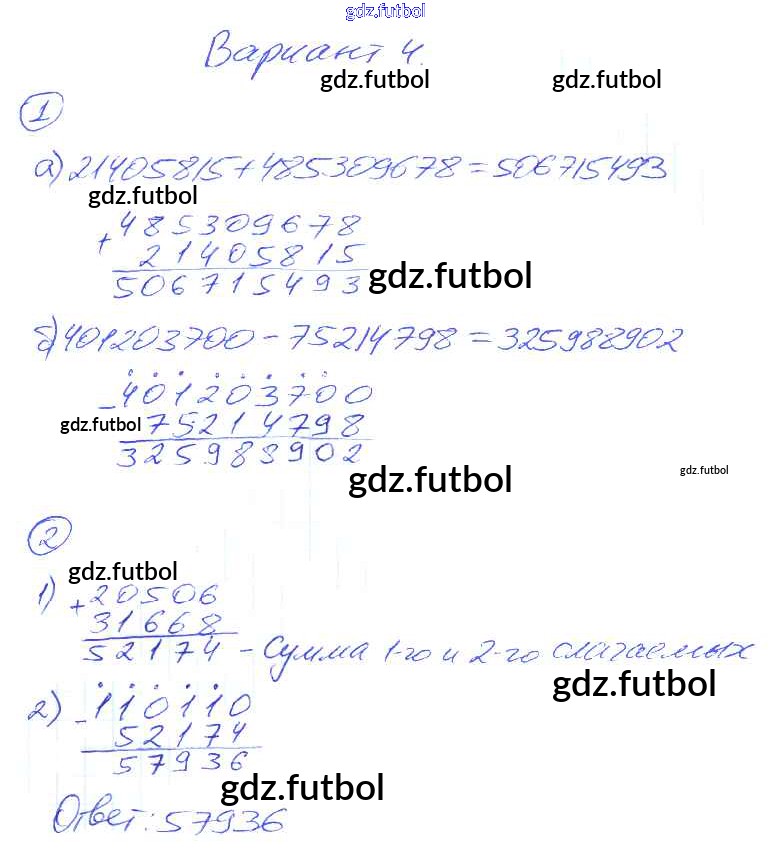 gdz.futbol
Вариант 4.
gdz.futbol gdz.futbol
1
а) 21405815+485309678=506715493
gdz.futbol
+ 485309678
21405815
gdz.futbol
506715493
б) 401203700-75214798=325988902
- 401203700
gdz.futbol
75214798
325988902
gdz.futbol gdz.futbol
2
gdz.futbol
1) + 20506
31668
52174 - сумма 1-го и 2-го слагаемых
gdz.futbol
2) - 110110
52174
57936
gdz.futbol
Ответ: 57936